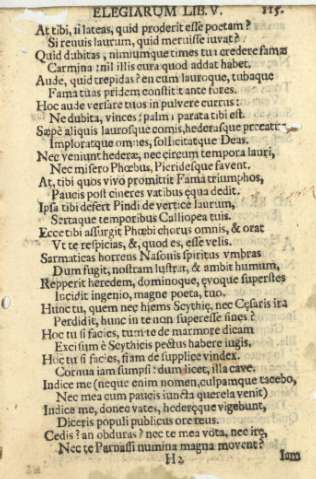 ELEGIARUM LIB. V. 115.
At tibi, ni lateas, quid proderit esse poetam?
Si renuis laurum, quid meruisse iuvat?
Quid dubitas, nimiumque times tua credere famæ
Carmina? nil illis cura quod addat habet.
Aude, quid trepidas? en cum lauroque, tubaque
Fama tuas pridem constitit ante fores.
Hoc aude versare tuos in pulvere currus:
Ne dubita, vinces: palma parata tibi est.
Sæpè aliquis laurosque comis, hederasque
Imploratque omnes, sollicitatque Deas.
Nec veniunt hederæ, nec circum tempora lauri,
Nec misero Phœbus, Pieridesque favent.
At, tibi quos vivo promittit Fama triumphos,
Paucis post cineres vatibus equa dedit.
Ipsa tibi defert Pindi de vertice laurum,
Sertaque temporibus Calliopea tuis.
Ecce tibi assurgit Phœbi chorus omnis, & orat
Vt te respicias, &, quod es, esse velis.
Sarmaticas horrens Nasonis spiritus vmbras
Dum fugit, nostram lustrat, & ambit humum,
Repperit heredem, dominoque, ęvoque superstes
Incidit ingenio, magne poeta, tuo.
Hunc tu, quem nec hiems Scythię, nec Cęsaris ira
Perdidit, hunc in te non superesse sines?
Hoc tu si facies, tum te de marmore dicam
Excisum è Scythicis pectus habere iugis.
Hoc tu si facies, fiam de supplice vindex.
Cornua iam sumpsi: dum licet, illa cave.
Indice me (neque enim nomen, culpamque tacebo,
Nec mea cum paucis iuncta querela venit)
Indice me, donec vates, hederęque vigebunt,
Diceris populi publicus ore reus.
Cedis? an obduras? nec te mea vota, nec irę,
Nec te Parnassi numina magna movent?
H2 Iam